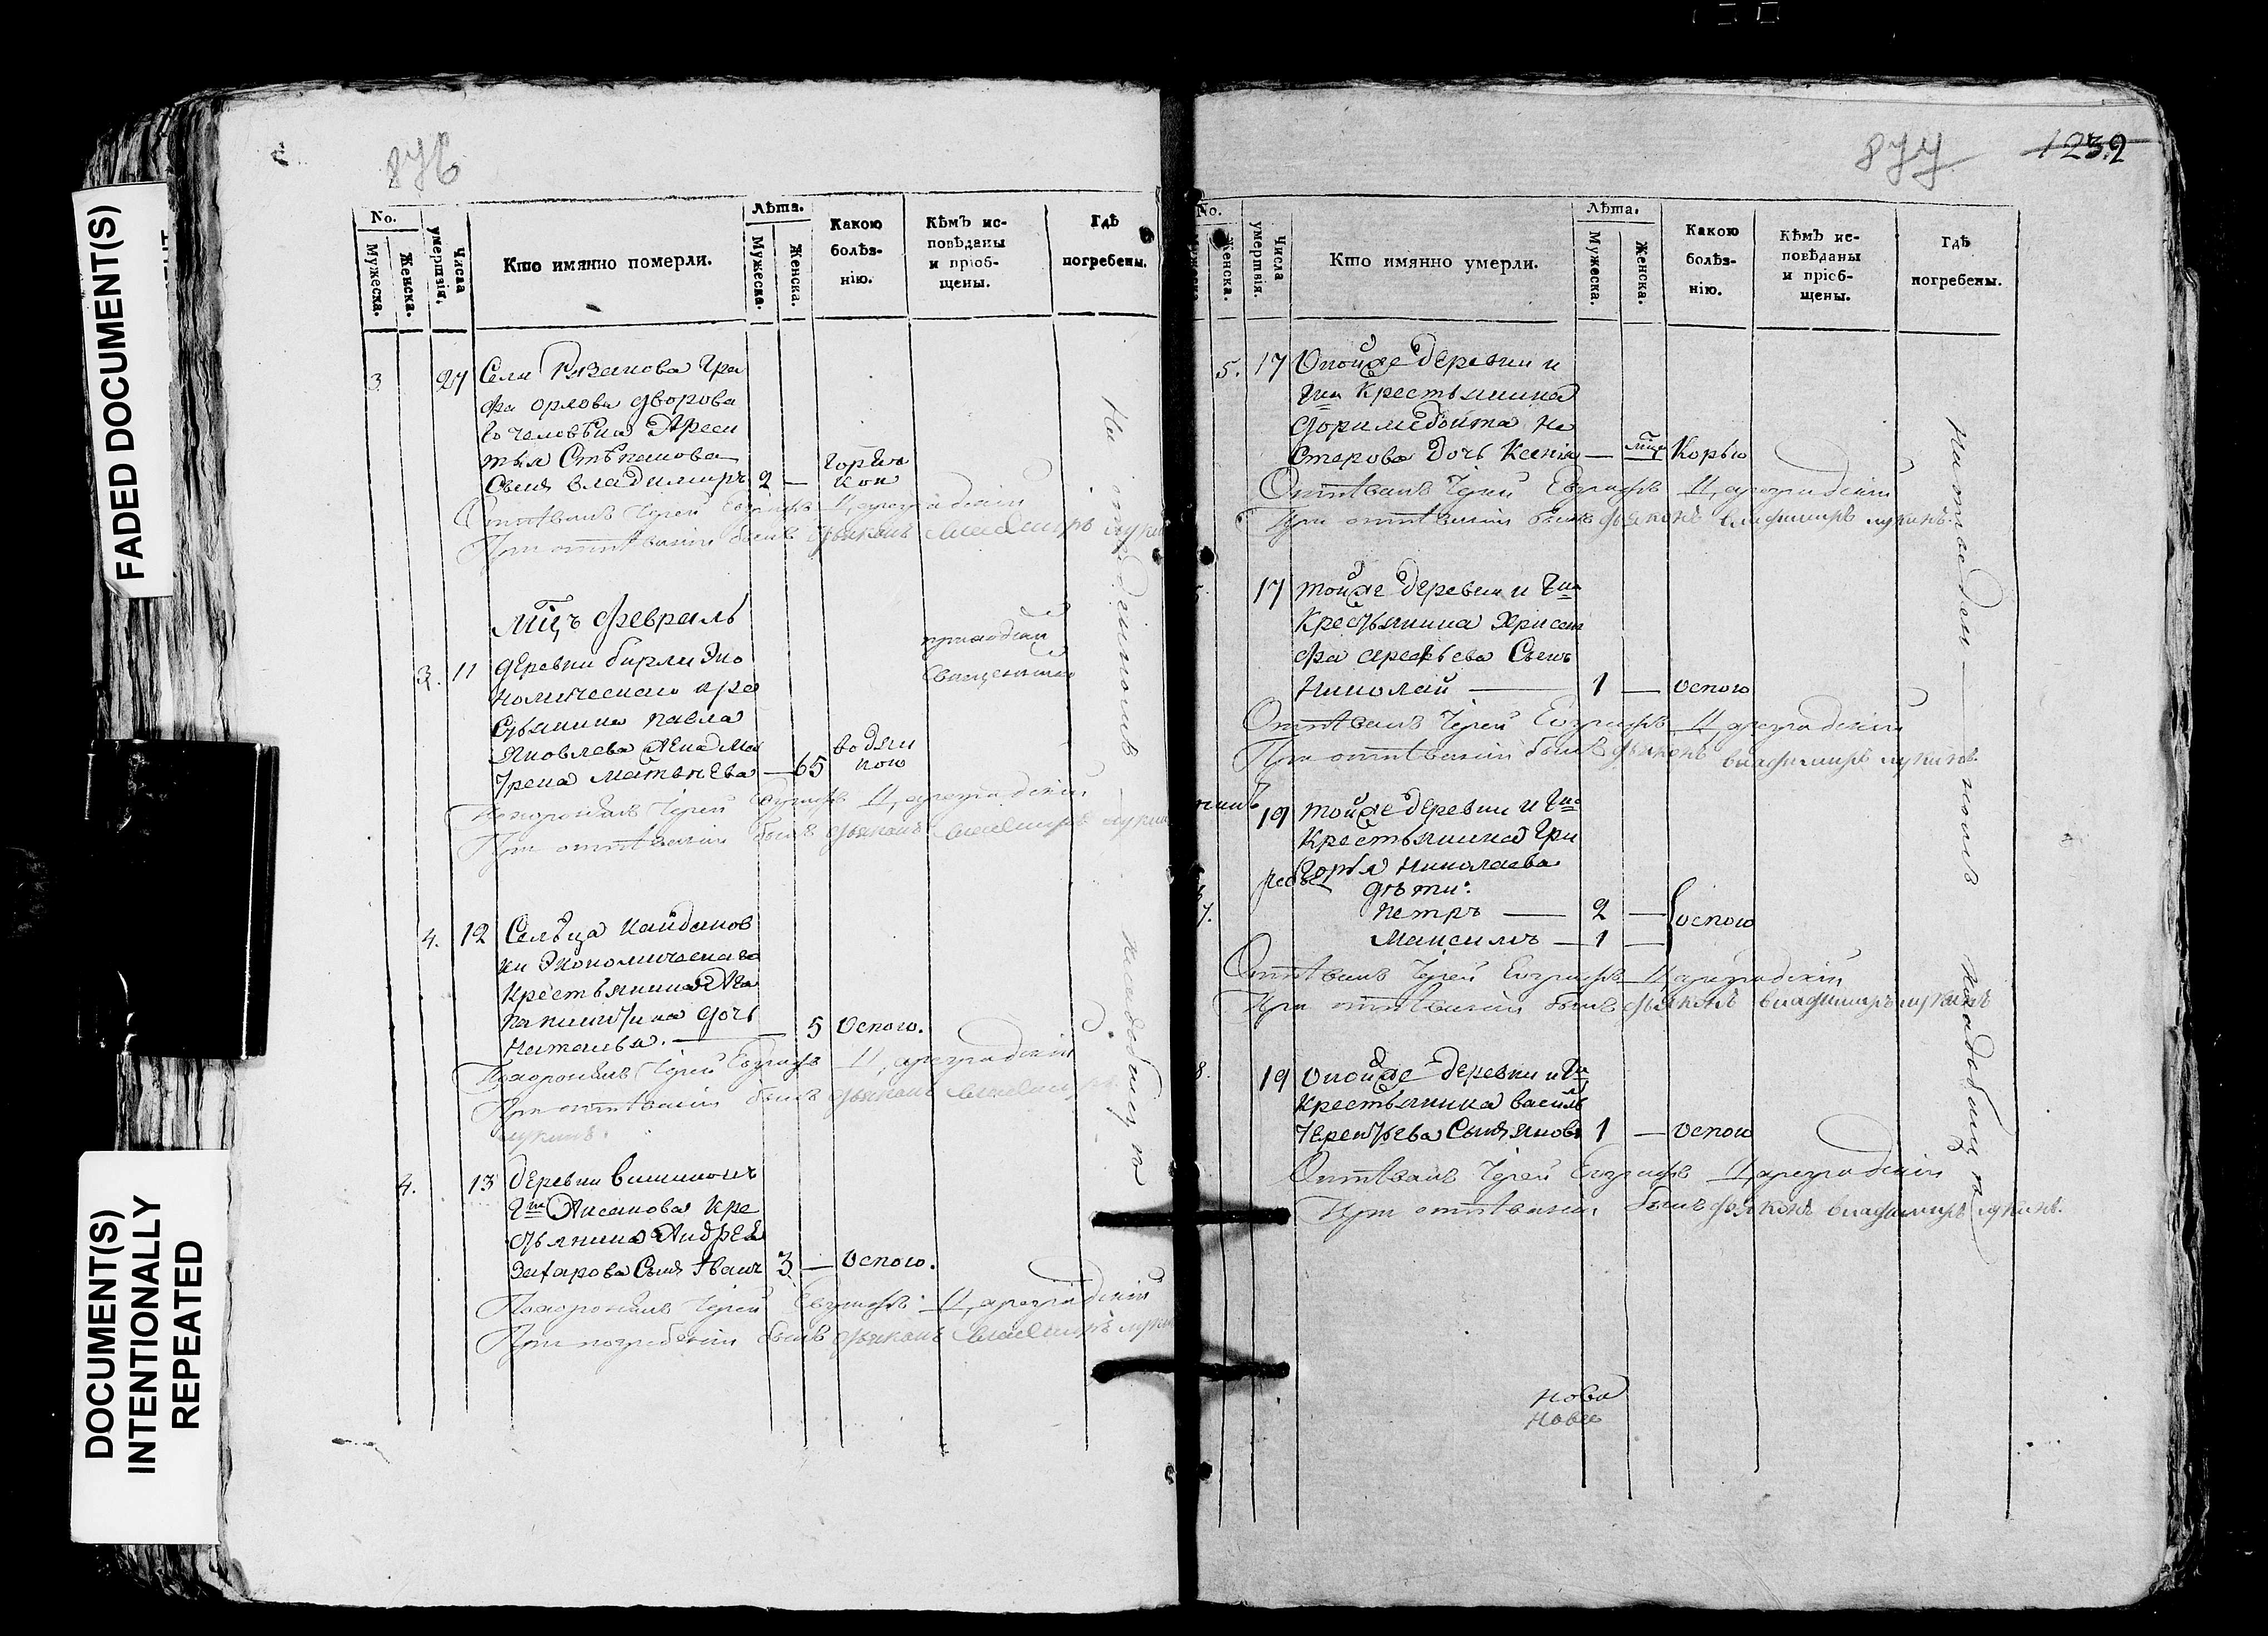 FADED DOCUMENT(S)
DOCUMENT(S)
INTENTIONALLY
REPEATED
876
No.
Мужеска.
Женска.
Числа умертвія.
Кто имянно померли.
Лѣта.
Мужеска.
Женска.
Какою
болѣз-
нію.
Кѣмъ ис-
повѣданы
и пріоб-
щены.
Гдѣ
погребены.
3 27 Села Рязанова Гра
фа орлова дворова
го человѣка
Степанова
Сынъ владимиръ 2 — горяч
кою
Отпѣвалъ Іерей Евграфъ Цареградскій
При отпѣваніи былъ дьяконъ
мцъ февраль
3. 11 деревни бирли Эко
номическаго кре
стьянина павла
яковлева жена Ма
трена матвеева — 65 водян
кою
приходски
Священник
Похоронилъ Іерей Евграфъ Цареградскій
При отпѣваніи былъ дьяконъ
4. 12 Сельца кайданов
ки Экономическаго
крестьянина
дочь
наталья. — 5 Оспою.
Похоронилъ Іерей Евграфъ Цареградскій
При отпѣваніи былъ дьяконъ
лукинъ.
4. 13 деревни
Гна кре
стьянина Андрея
Захарова Сынъ Іванъ 3 — Оспою.
Похоронилъ Іерей Евграфъ Цареградскій
При погребеніи былъ дьяконъ
На отведенномъ кладбищѣ
877 1232
No.
Мужеска
Женска.
Числа умертвія.
Кто имянно умерли.
Лѣта.
Мужеска.
Женска.
Какою
болѣз-
нію.
Кѣмъ ис-
повѣданы
и пріоб-
щены.
Гдѣ
погребены.
5. 17 Онойже деревни и
Гна крестьянина
доримедонта не
стерова дочь Ксенія — мцъ Корью
Отпѣвалъ Іерей Евграфъ Цареградскій
При отпѣваніи былъ дьяконъ владимиръ лукинъ.
17 тойже деревни и Гна
крестьянина Хрисан
фа арефьева Сынъ
Николай — 1 — оспою
Отпѣвалъ Іерей Евграфъ Цареградскій
При отпѣваніи былъ дьяконъ владимиръ лукинъ.
19 тойже деревни и Гна
крестьянина Гри
горья Николаева
дѣти:
7. Петръ — 2 — оспою
Максимъ — 1 —
Отпѣвалъ Іерей Евграфъ Цареградскій
При отпѣваніи былъ дьяконъ владимиръ лукинъ
8. 19 Онойже деревни и Гна
крестьянина василь
терентьева Сынъ яковъ 1 — оспою
Отпѣвалъ Іерей Евграфъ Цареградскій
При отпѣваніи былъ дьяконъ владимиръ лукинъ.
кладбищѣ